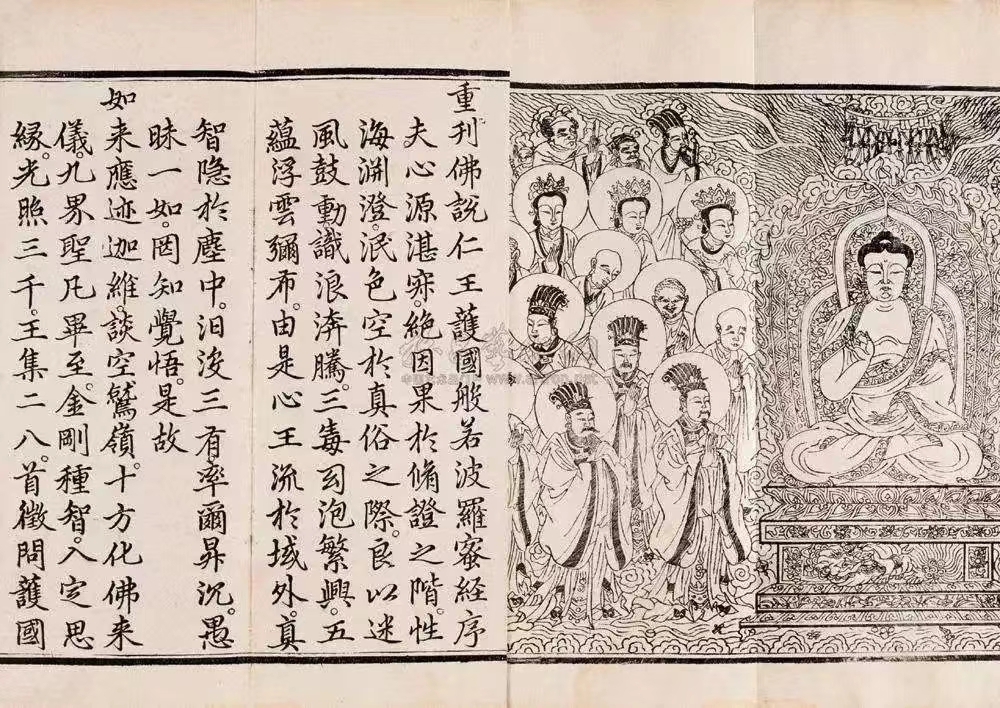 重刊佛說仁王護國般若波羅蜜經序
夫心源湛寂。絕因果於脩證之階。性
海淵澄。泯色空於真俗之際。良以迷
風鼓動識浪濤騰。三毒句泡繁興。五
蘊浮雲彌布。由是心王流於域外。真
智隐於塵中。汩没三有率爾昇沉。愚
昧一如。罔知覺悟。是故
如来應迹迦維。談空鷲嶺。十方化佛来
儀。九界聖凡畢至。金剛種智。入定思
緣。光照三千。王集二八。首徵問護國